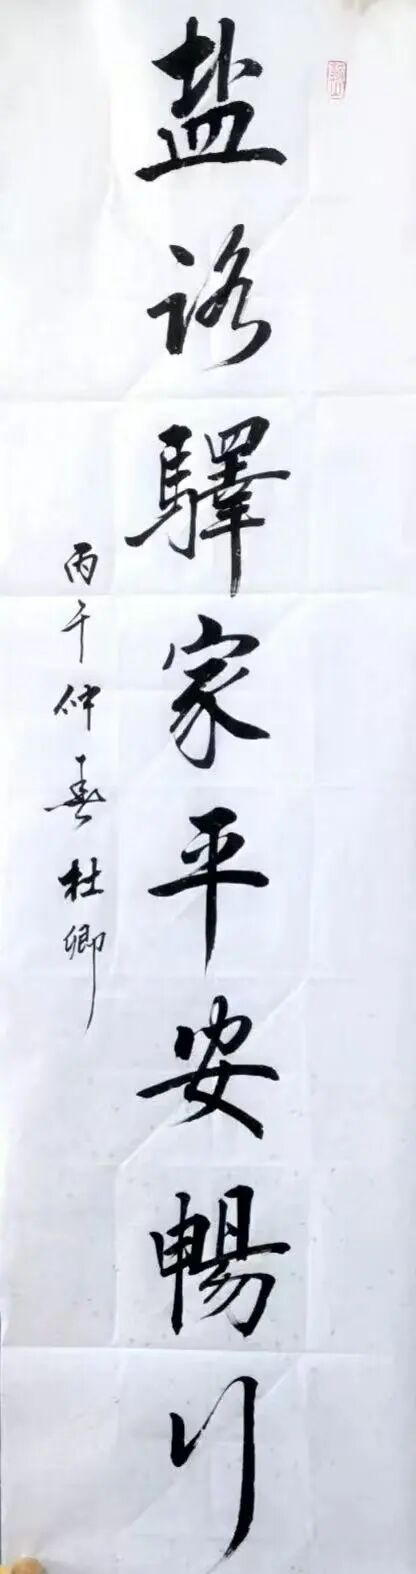 盐路驿家平安暢行
丙午仲春杜卿